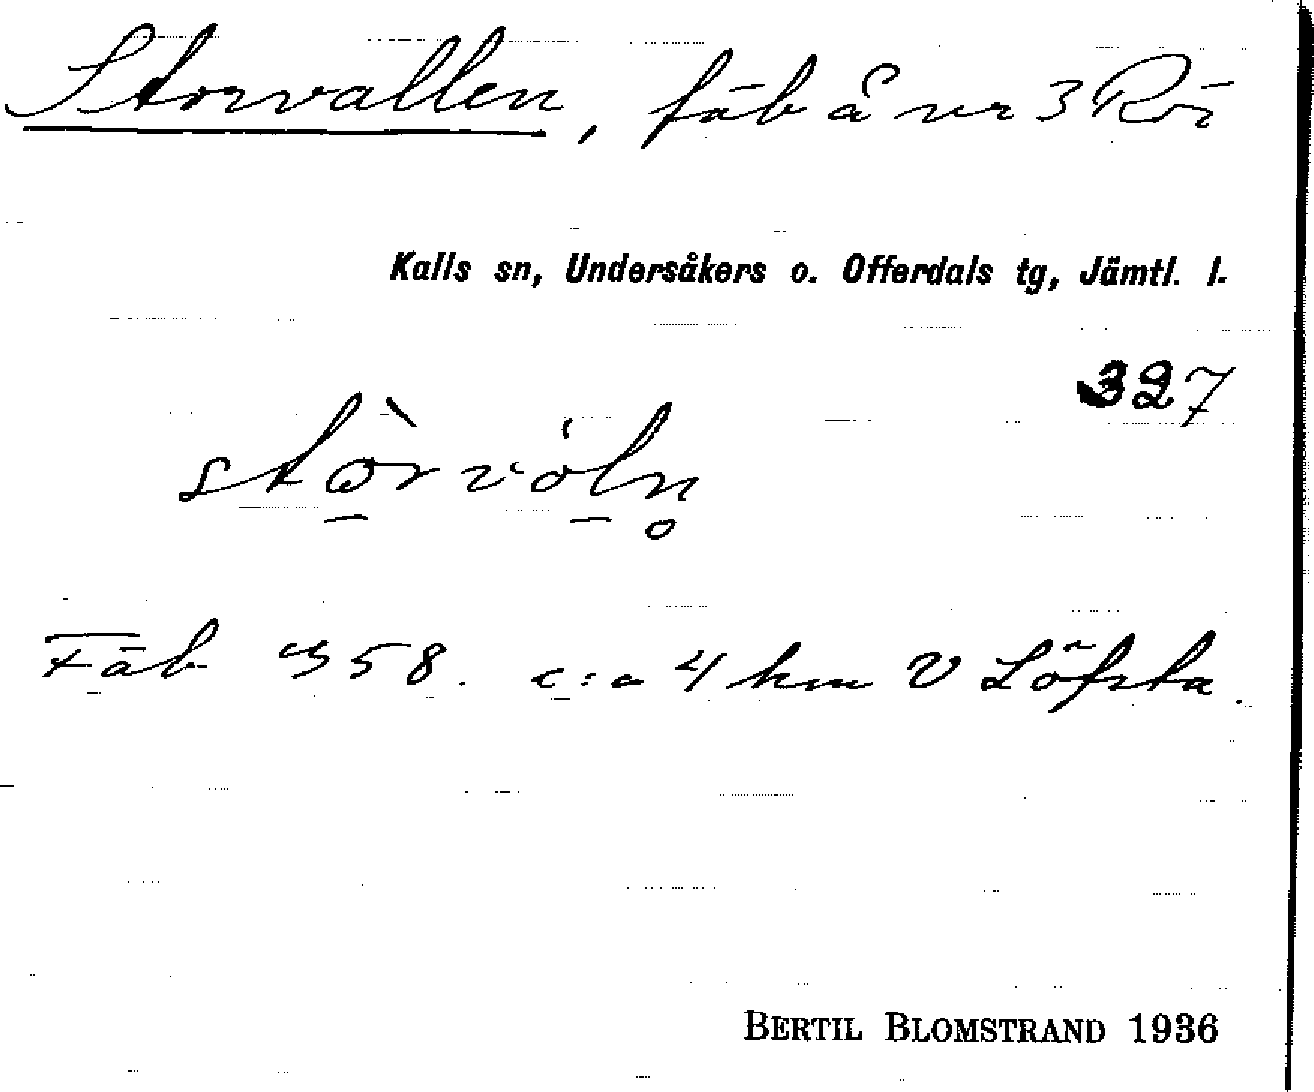 Storvallen, fäb å nr 3 Röi
Kalls sn, Undersåkers o. Offerdals tg, Jämtl. l.
327
Fäb 358. c:a 4 km V Löfsta.
BERTIL BLOMSTRAND 1936